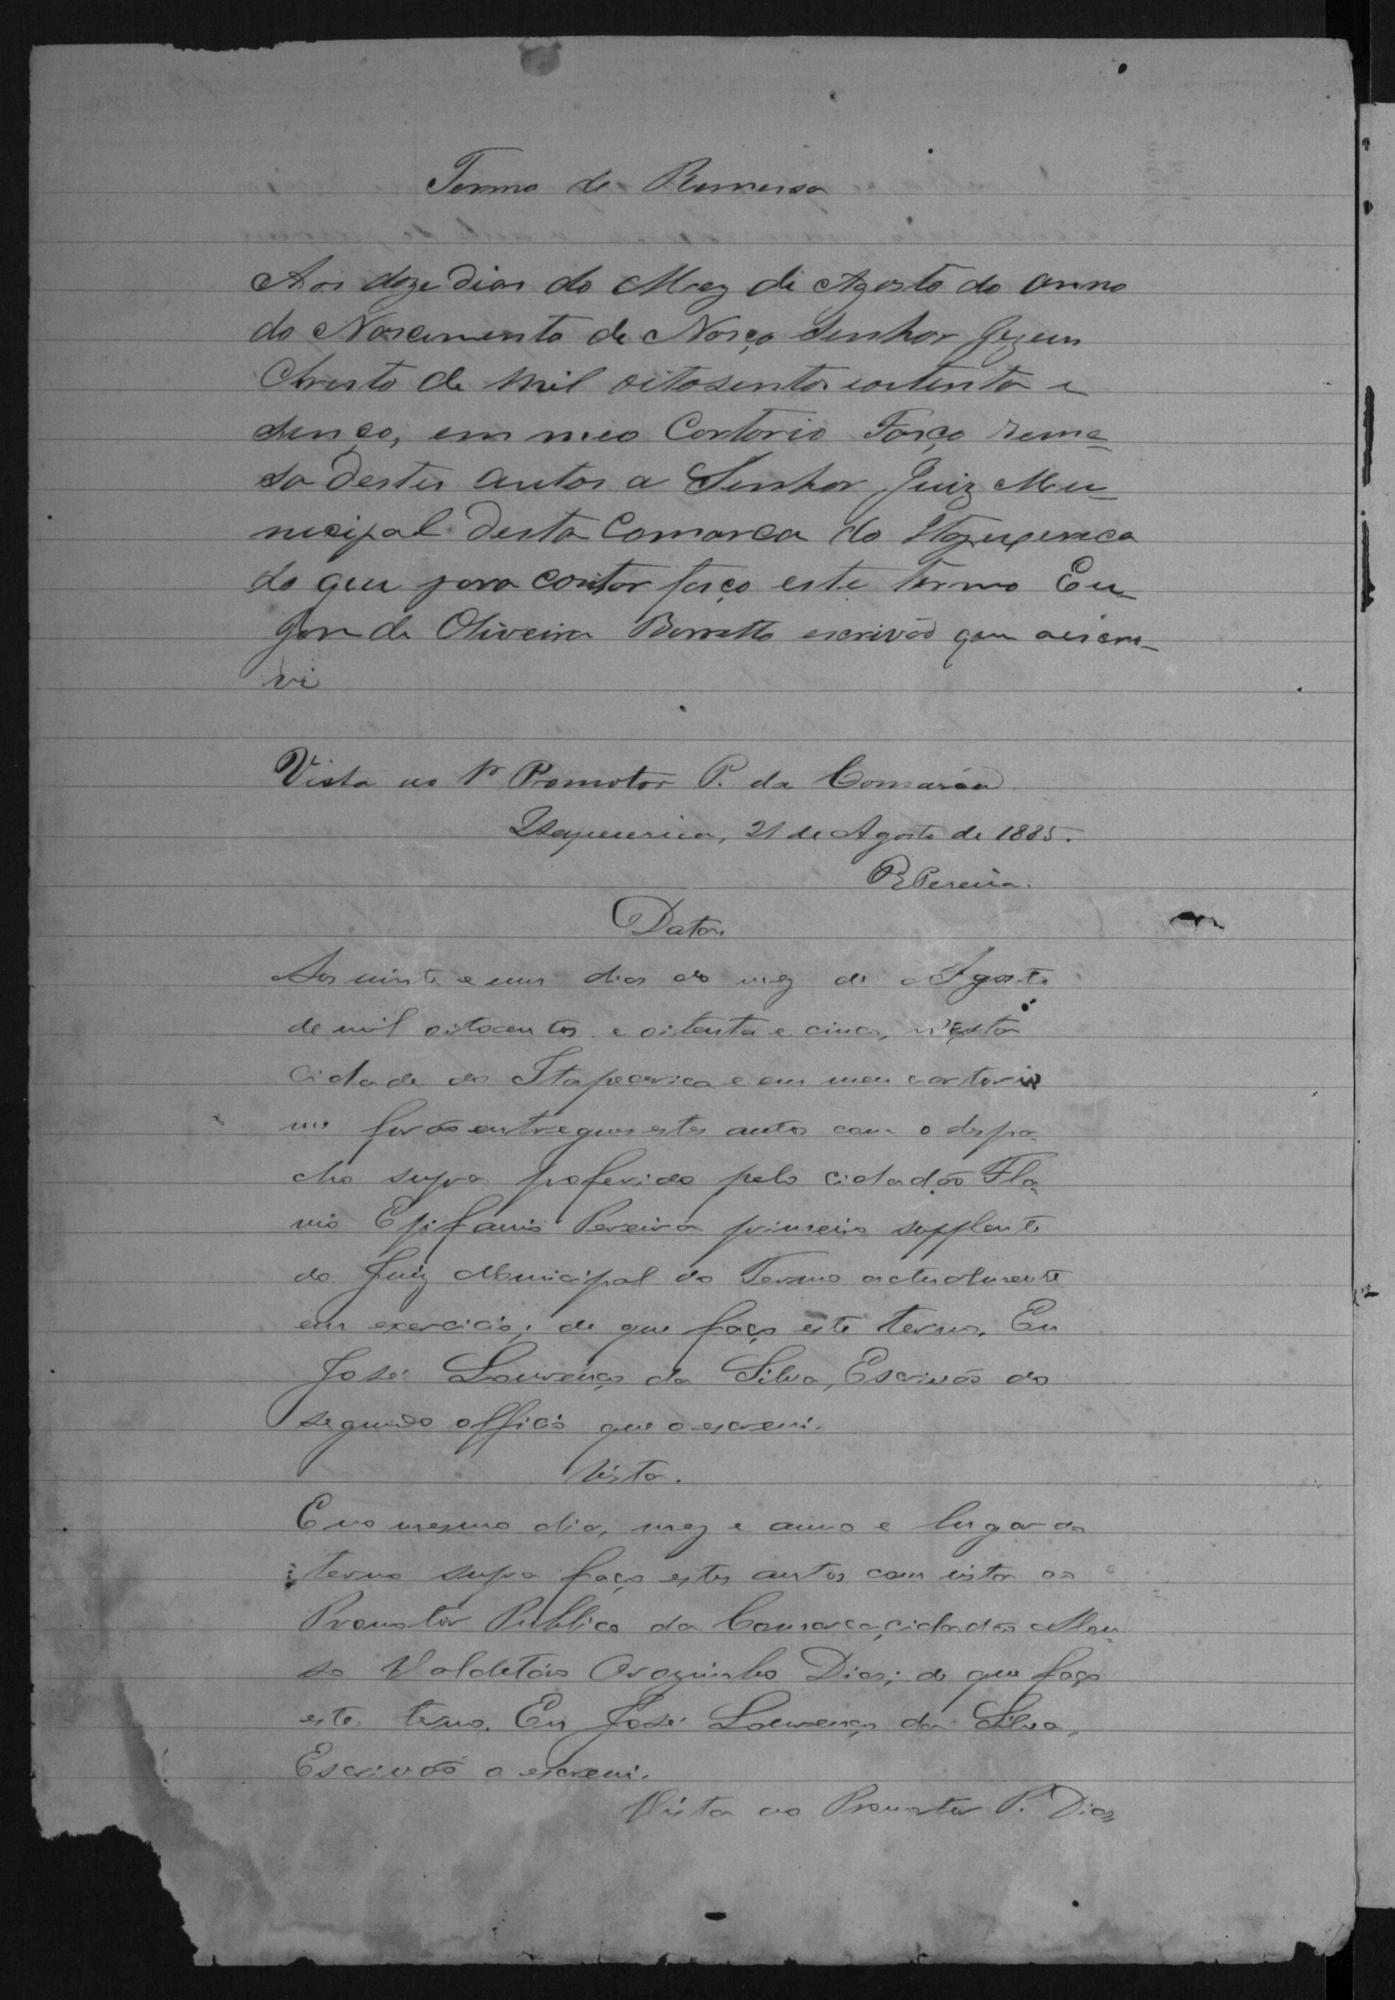 Termo de Remersa
Aos doze dias do Mez de Agosto do anno
do Nascimento de Noso Senhor Jezus
Christo de mil oitosentos outenta e
sinço, em meo Cartorio Faço reme-
sa destes autos a Senhor Juiz Mu-
nicipal desta Comarca do Itapeserica
do que para contar faço este Termo Eu
de Oliveira Barretto escrivão que aescre-
vi
Vista ao Promotor P. da Comarca.
Itapecerica, 21 de Agosto de 1885.
Pereira.
Data.
Aos vinte e um dias do mez de Agosto
de mil oitocentos e oitenta e cinco, n'esta
Cidade de Itapecerica e em meu cartorio
me forão entregues estes autos com o despa-
cho supra proferido pelo cidadão Fla-
vio Epifanio Pereira primeiro supplente
do Juiz Municipal do Termo actualmente
em exercicio; de que faço este termo. Eu
José Lourenço da Silva, Escrivão do
segundo officio que o escrevi.
Vista.
E no mesmo dia, mez e anno e lugar do
termo supra faço estes autos com vista ao
Promotor Publico da Comarca, cidadão
Dias; de que faço
este termo. Eu José Lourenço da Silva,
Escrivão o escrevi.
Vista ao Promotor P. Dias